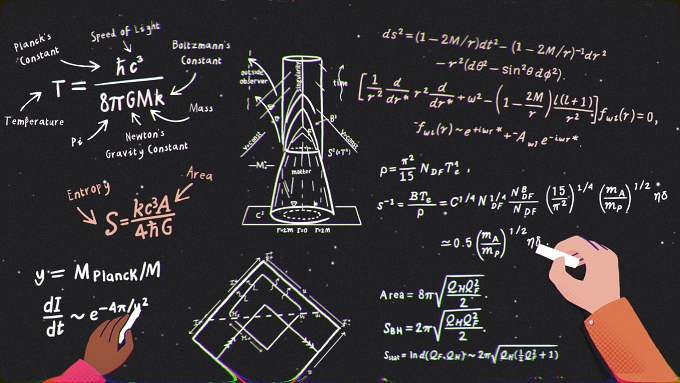 Planck's Constant
Speed of Light
Boltzmann's Constant
T = ħc³ / 8πGMk
Temperature
Pi
Newton's Gravity Constant
Mass
Entropy
Area
S = kc³A / 4ħG
y = M_Planck/M
dI/dt ~ e^(-4π/y²)
outside observer
singularity
time
matter
C²
r=2M r=0 r=2M
ds² = (1 - 2M/r)dt² - (1 - 2M/r)⁻¹dr²
- r²(dθ² - sin²θ dφ²).
[1/r² d/dr* r² d/dr* + ω² - (1 - 2M/r) l(l+1)/r²] f_ωl(r) = 0,
f_ωl(r) ~ e^(+iωr*) + A_ωl e^(-iωr*).
ρ = π²/15 N_DF T_e⁴,
≃ 0.5 (m_A/m_P)^(1/2) ηδ
Area = 8π√(Q_H Q_F²/2)
S_BH = 2π√(Q_H Q_F²/2)
S_stat = ln d(Q_F, Q_H) ~ 2π√(Q_H(½Q_F² + 1))